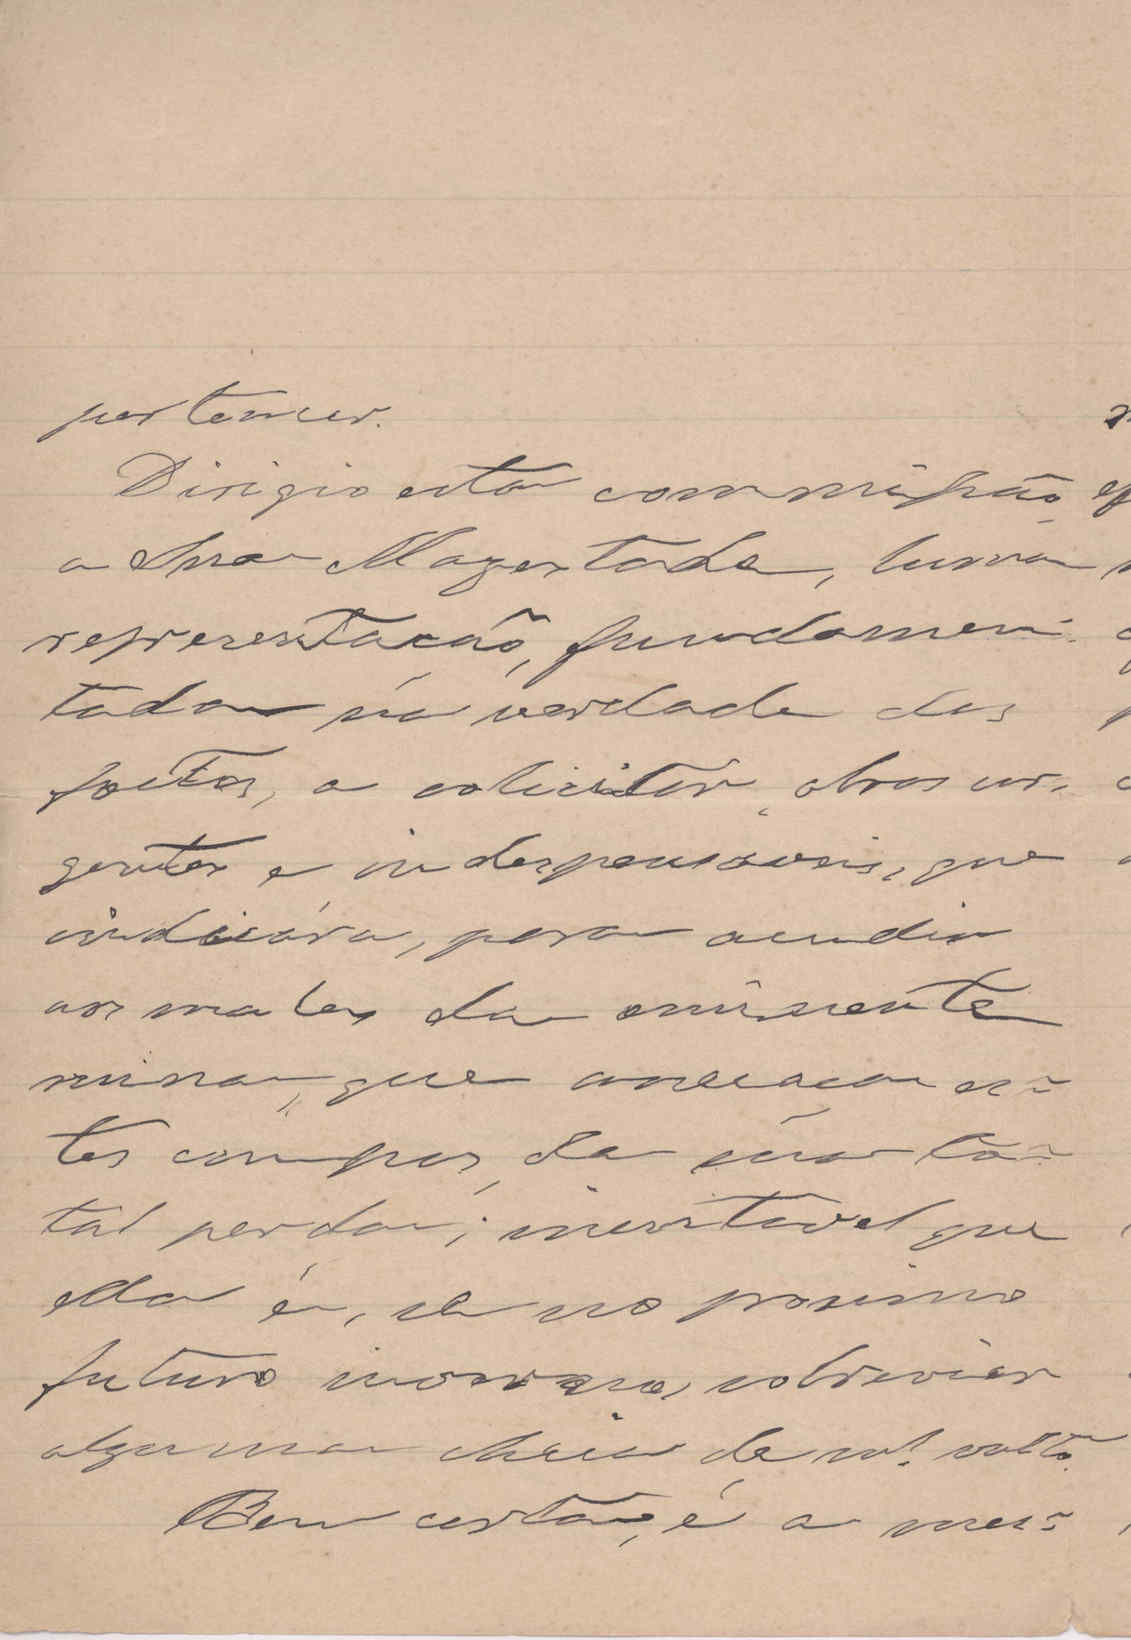 pertencer.
Dirigio esta commissão
a Sua Magestade, huma
representação, fundamen-
tada na verdade dos
factos, a solicitar obras ur-
gentes e indespensaveis, que
indicára, para acudir
aos males da eminente
ruina, que ameaça es-
tes campos, de uma to-
tal perda; inevitavel que
ella é, se no proximo
futuro inverno, sobrevier
alguma cheia de
Bem certa, é a mes-